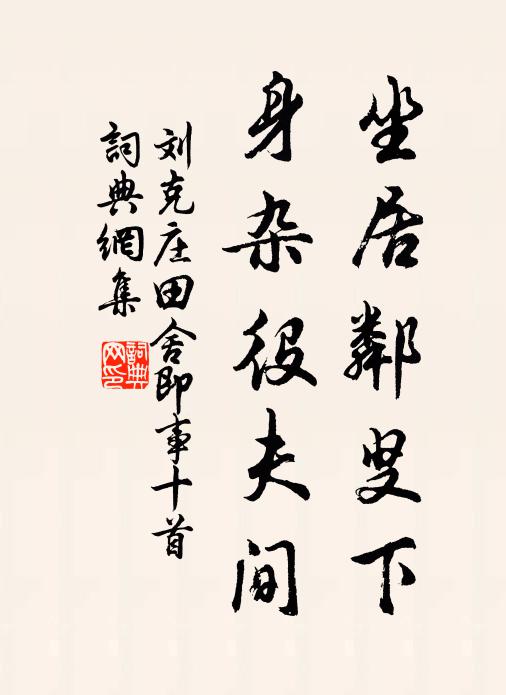 坐居鄰叟下
身杂役夫间
刘克庄田舍即事十首
詞典網集
詞典网印